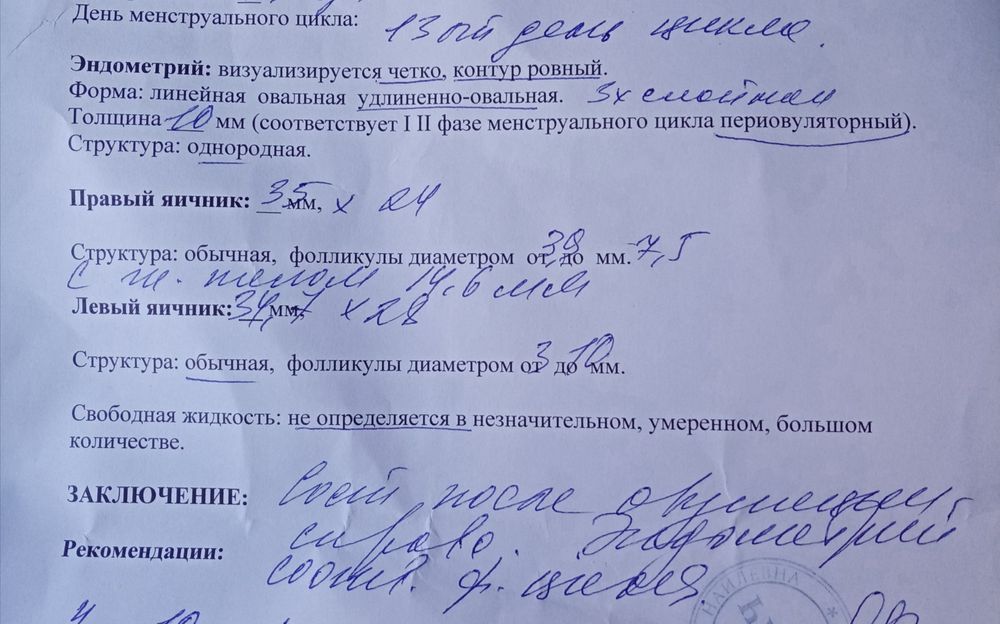 День менструального цикла: 13ый день цикла.
Эндометрий: визуализируется четко, контур ровный.
Форма: линейная овальная удлиненно-овальная. 3х слойная
Толщина 10 мм (соответствует I II фазе менструального цикла периовуляторный).
Структура: однородная.
Правый яичник: 35 мм, х 24
Структура: обычная, фолликулы диаметром от 3,9 до мм. 7,5
с ж. телом 14,6 мм
Левый яичник: 34,7 мм, х 28
Структура: обычная, фолликулы диаметром от 3 до 10 мм.
Свободная жидкость: не определяется в незначительном, умеренном, большом
количестве.
ЗАКЛЮЧЕНИЕ: Сост после овуляции
справа. Эндометрий
Рекомендации: соотв. ф. цикла.
НАИЛЕВНА